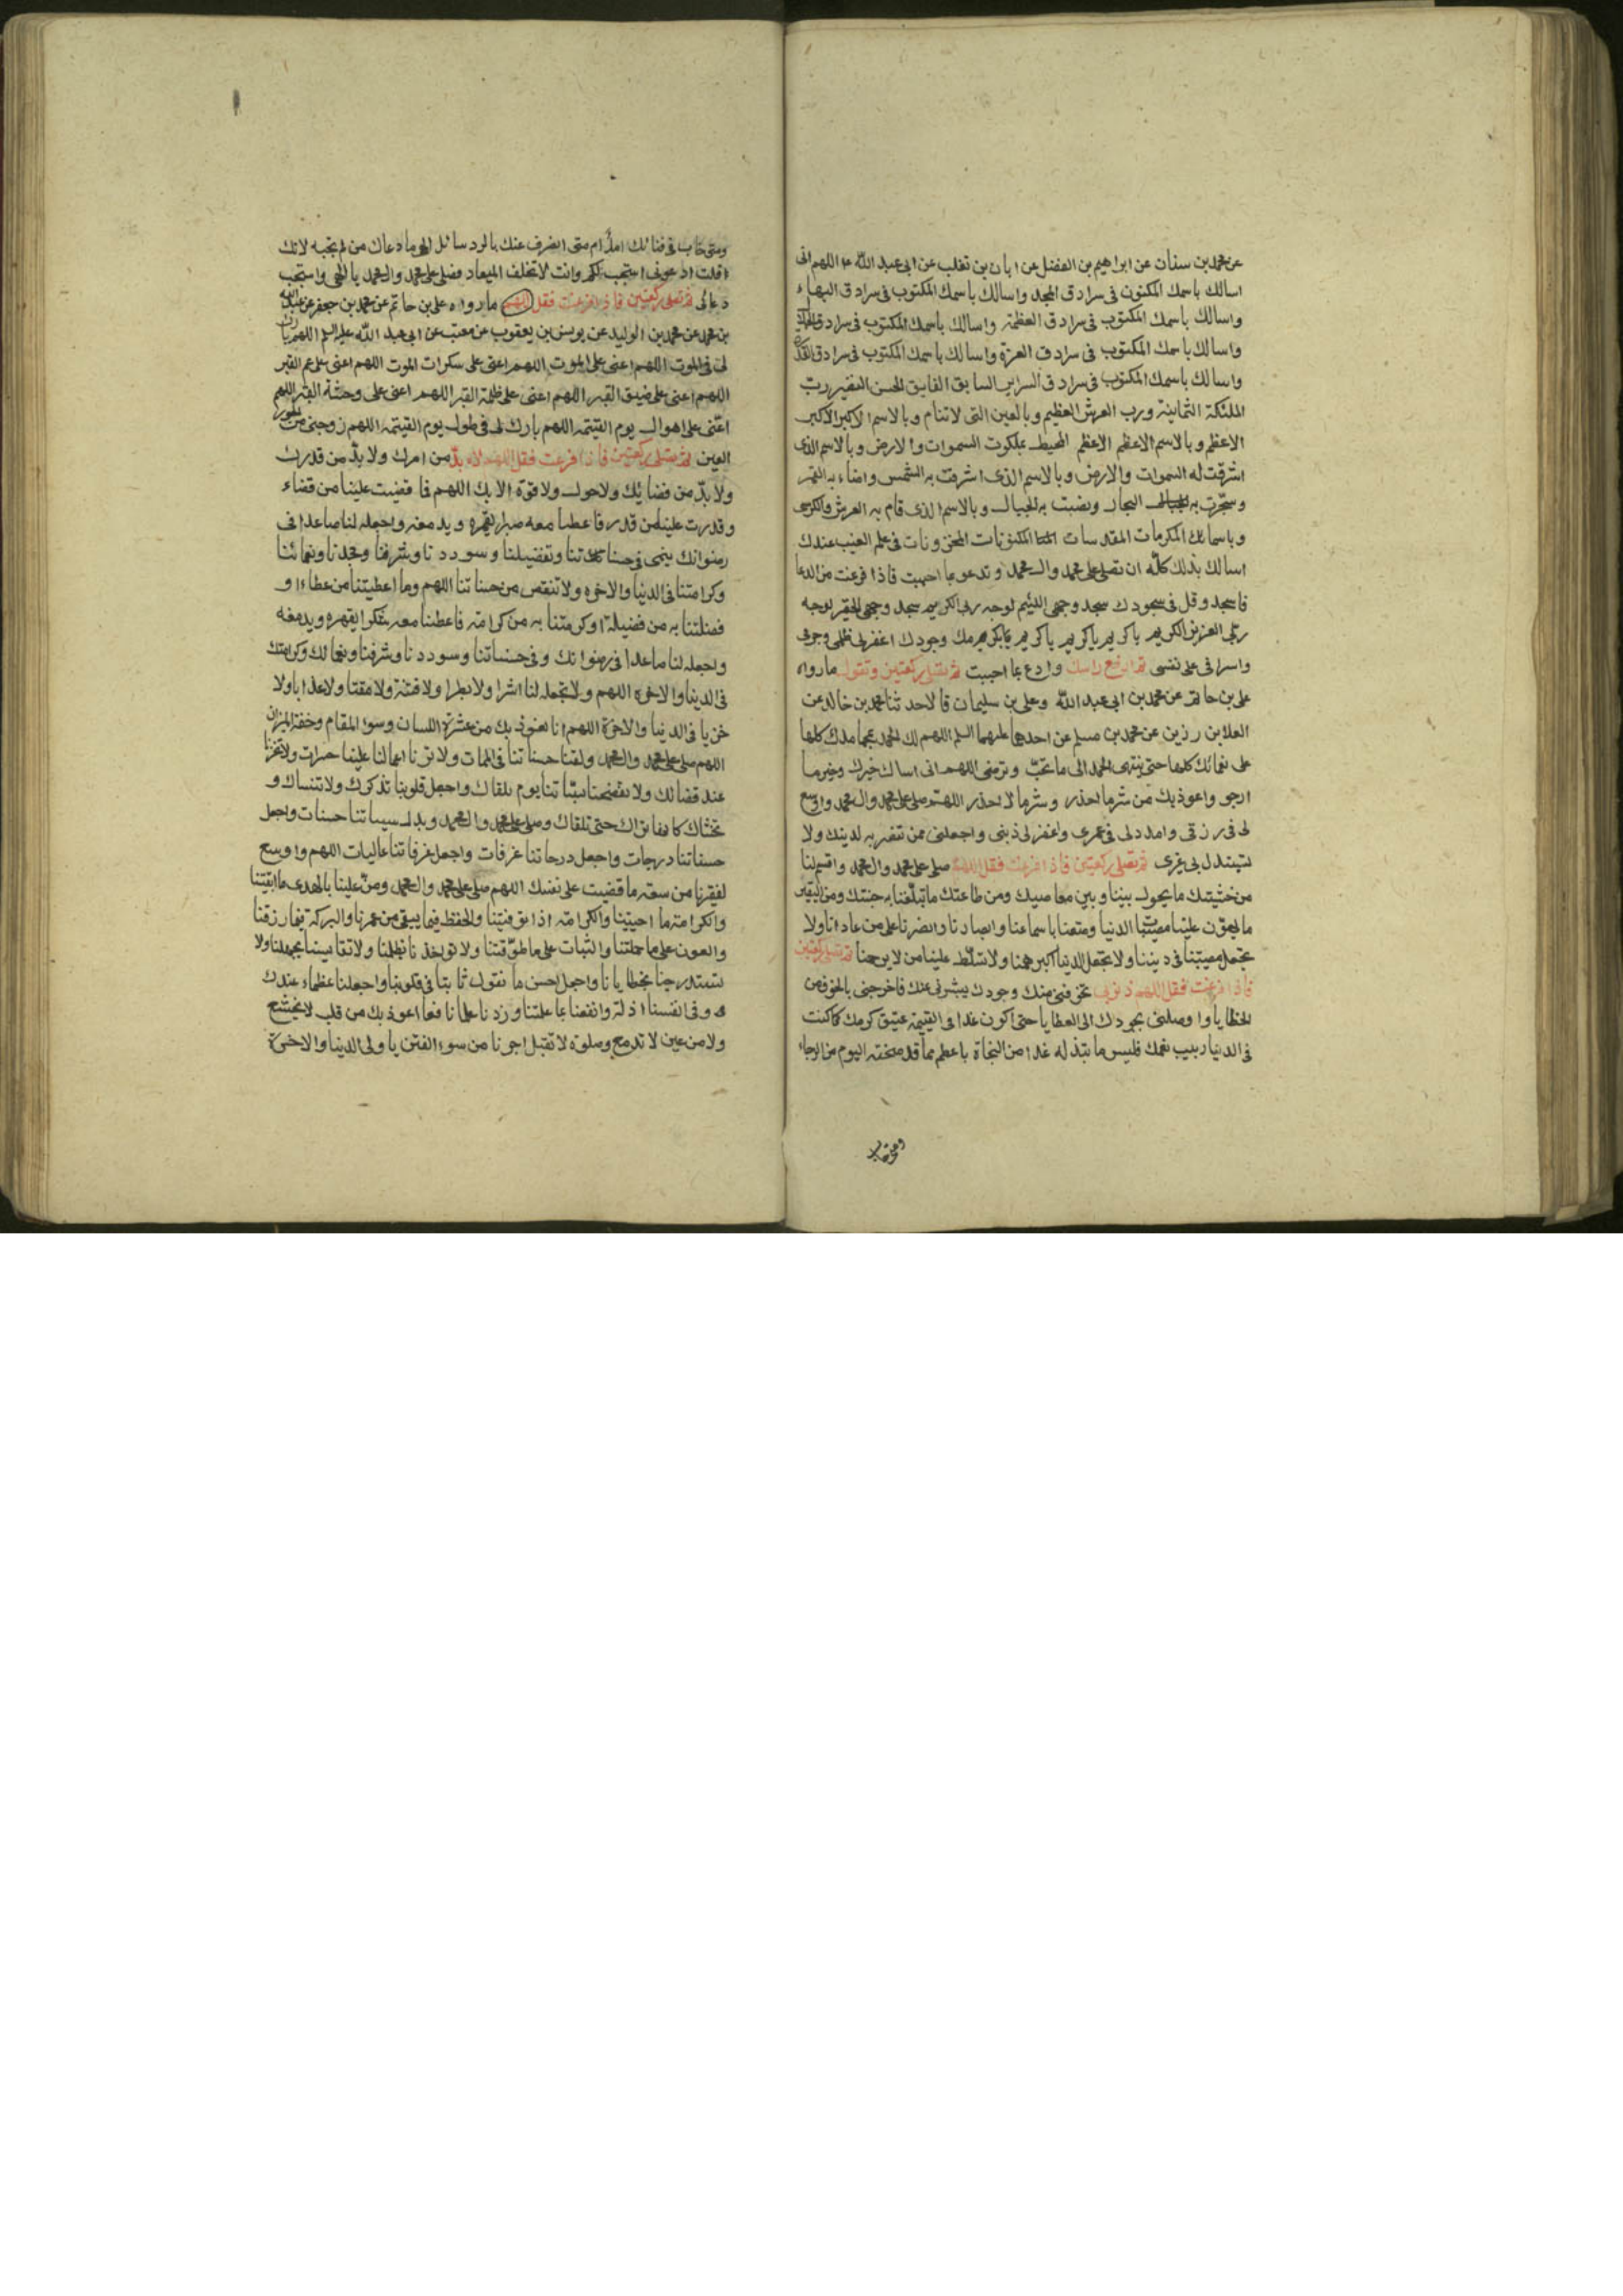 عن محمد بن سنان عن ابراهيم بن الفضل عن ابان بن تغلب عن ابى عبد الله ع اللهم انى
اسالك باسمك المكنون فى سرادق المجد واسالك باسمك المكتوب فى سرادق البهاء
واسالك باسمك المكتوب فى سرادق العظمة واسالك باسمك المكتوب فى سرادق الجلال
واسالك باسمك المكتوب فى سرادق العزة واسالك باسمك المكتوب فى سرادق القدرة
واسالك باسمك المكتوب فى سرادق السراير السابق الفايق الحسن النضير رب
الملئكة الثمانية ورب العرش العظيم وبالعين التى لا تنام وبالاسم الاكبر الاكبر
الاعظم وبالاسم الاعظم الاعظم المحيط بملكوت السموات والارض وبالاسم الذى
اشرقت له السموات والارض وبالاسم الذى اشرقت به الشمس واضاء به القمر
وسجرت به البحار ونصبت به الجبال وبالاسم الذى قام به العرش والكرسى
وباسمائك المكرمات المقدسات المكنونات المخزونات فى علم الغيب عندك
اسالك بذلك كله ان تصلى على محمد وال محمد وتدعو بما احببت فاذا فرغت من الدعا
فاسجد وقل فى سجودك سجد وجهى اللئيم لوجه ربى الكريم سجد وجهى الحقير لوجه
ربى العزيز الكريم يا كريم يا كريم يا كريم بكرمك وجودك اغفر لى ظلمى وجرمى
واسرافى على نفسى ثم ارفع راسك وادع بما احببت ثم تصلى ركعتين وتقول ما رواه
على بن حاتم عن محمد بن ابى عبد الله وعلى بن سليمان قالا حدثنا محمد بن خالد عن
العلا بن رزين عن محمد بن مسلم عن احدهما عليهما السلم اللهم لك الحمد بمحامدك كلها
على نعمائك كلها حتى ينتهى الحمد الى ما تحب وترضى اللهم انى اسالك خيرك وخير ما
ارجو واعوذ بك من شر ما احذر وشر ما لا احذر اللهم صل على محمد وال محمد واوسع
لى فى رزقى وامدد لى فى عمرى واغفر لى ذنبى واجعلنى ممن تنتصر به لدينك ولا
تستبدل بى غيرى ثم تصلى ركعتين فاذا فرغت فقل اللهم صلى على محمد وال محمد واقسم لنا
من خشيتك ما يحول بيننا وبين معاصيك ومن طاعتك ما تبلغنا به جنتك ومن اليقين
ما يهون علينا مصيبات الدنيا ومتعنا باسماعنا وابصارنا وانصرنا على من عادانا ولا
تجعل مصيبتنا فى ديننا ولا تجعل الدنيا اكبر همنا ولا تسلط علينا من لا يرحمنا ثم تصلى ركعتين
فاذا فرغت فقل اللهم ذنوبى تخوفنى منك وجودك يبشرنى عنك فاخرجنى بالخوف من
الخطايا واوصلنى بجودك الى العطايا حتى اكون غدا فى القيمة عتيق كرمك كما كنت
فى الدنيا ربيب نعمك فليس ما تبذله غدا من النجاة باعظم مما قد منحته اليوم من الرجاء
ومتى خاب
ومتى خاب فى فنائك امل ام متى انصرف عنك بالرد سائل الهى ما دعاك من لم تجبه لانك
قلت ادعونى استجب لكم وانت لا تخلف الميعاد فصل على محمد وال محمد يا الهى واستجب
دعائى ثم تصلى ركعتين فاذا فرغت فقل اللهم ما رواه على بن حاتم عن محمد بن جعفر عن عبد الله
بن محمد عن محمد بن الوليد عن يونس بن يعقوب عن معتب عن ابى عبد الله عليه السلم اللهم بارك
لى فى الموت اللهم اعنى على الموت اللهم اعنى على سكرات الموت اللهم اعنى على غم القبر
اللهم اعنى على ضيق القبر اللهم اعنى على ظلمة القبر اللهم اعنى على وحشة القبر اللهم
اعنى على اهوال يوم القيمة اللهم بارك لى فى طول يوم القيمة اللهم زوجنى من الحور
العين ثم تصلى ركعتين فاذا فرغت فقل اللهم لا بد من امرك ولا بد من قدرك
ولا بد من قضائك ولا حول ولا قوة الا بك اللهم فما قضيت علينا من قضاء
وقدرت علينا من قدر فاعطنا معه صبرا يقهره ويدمغه واجعله لنا صاعدا فى
رضوانك ينمى فى حسناتنا وتفضيلنا وسوددنا وشرفنا ومجدنا ونعمائنا
وكرامتنا فى الدنيا والاخرة ولا تنقص من حسناتنا اللهم وما اعطيتنا من عطاء او
فضلتنا به من فضيلة او كرمتنا به من كرامة فاعطنا معه شكرا يقهره ويدمغه
واجعله لنا صاعدا فى رضوانك وفى حسناتنا وسوددنا وشرفنا ونعمائك وكرامتك
فى الدنيا والاخرة اللهم ولا تجعله لنا اشرا ولا بطرا ولا فتنة ولا مقتا ولا عذابا ولا
خزيا فى الدنيا والاخرة اللهم انا نعوذ بك من عثرة اللسان وسوء المقام وخفة الميزان
اللهم صل على محمد وال محمد ولقنا حسناتنا فى الممات ولا ترنا اعمالنا علينا حسرات ولا تخزنا
عند قضائك ولا تفضحنا بسيئاتنا يوم نلقاك واجعل قلوبنا تذكرك ولا تنساك و
تخشاك كانها تراك حتى تلقاك وصلى على محمد وال محمد وبدل سيياتنا حسنات واجعل
حسناتنا درجات واجعل درجاتنا غرفات واجعل غرفاتنا عاليات اللهم واوسع
لفقرنا من سعة ما قضيت على نفسك اللهم صل على محمد وال محمد ومن علينا بالهدى ما ابقيتنا
والكرامة ما احييتنا والكرامة اذا توفيتنا والحفظ فيما يبقى من عمرنا والبركة فيما رزقتنا
والعون على ما حملتنا والثبات على ما طوقتنا ولا تواخذنا بظلمنا ولا تقايسنا بجهلنا ولا
تستدرجنا بخطايانا واجعل احسن ما نقول ثابتا فى قلوبنا واجعلنا عظماء عندك
وفى انفسنا اذلة وانفعنا بما علمتنا وزدنا علما نافعا اعوذ بك من قلب لا يخشع
ولا من عين لا تدمع وصلوة لا تقبل اجرنا من سوء الفتن يا ولى الدنيا والاخرة